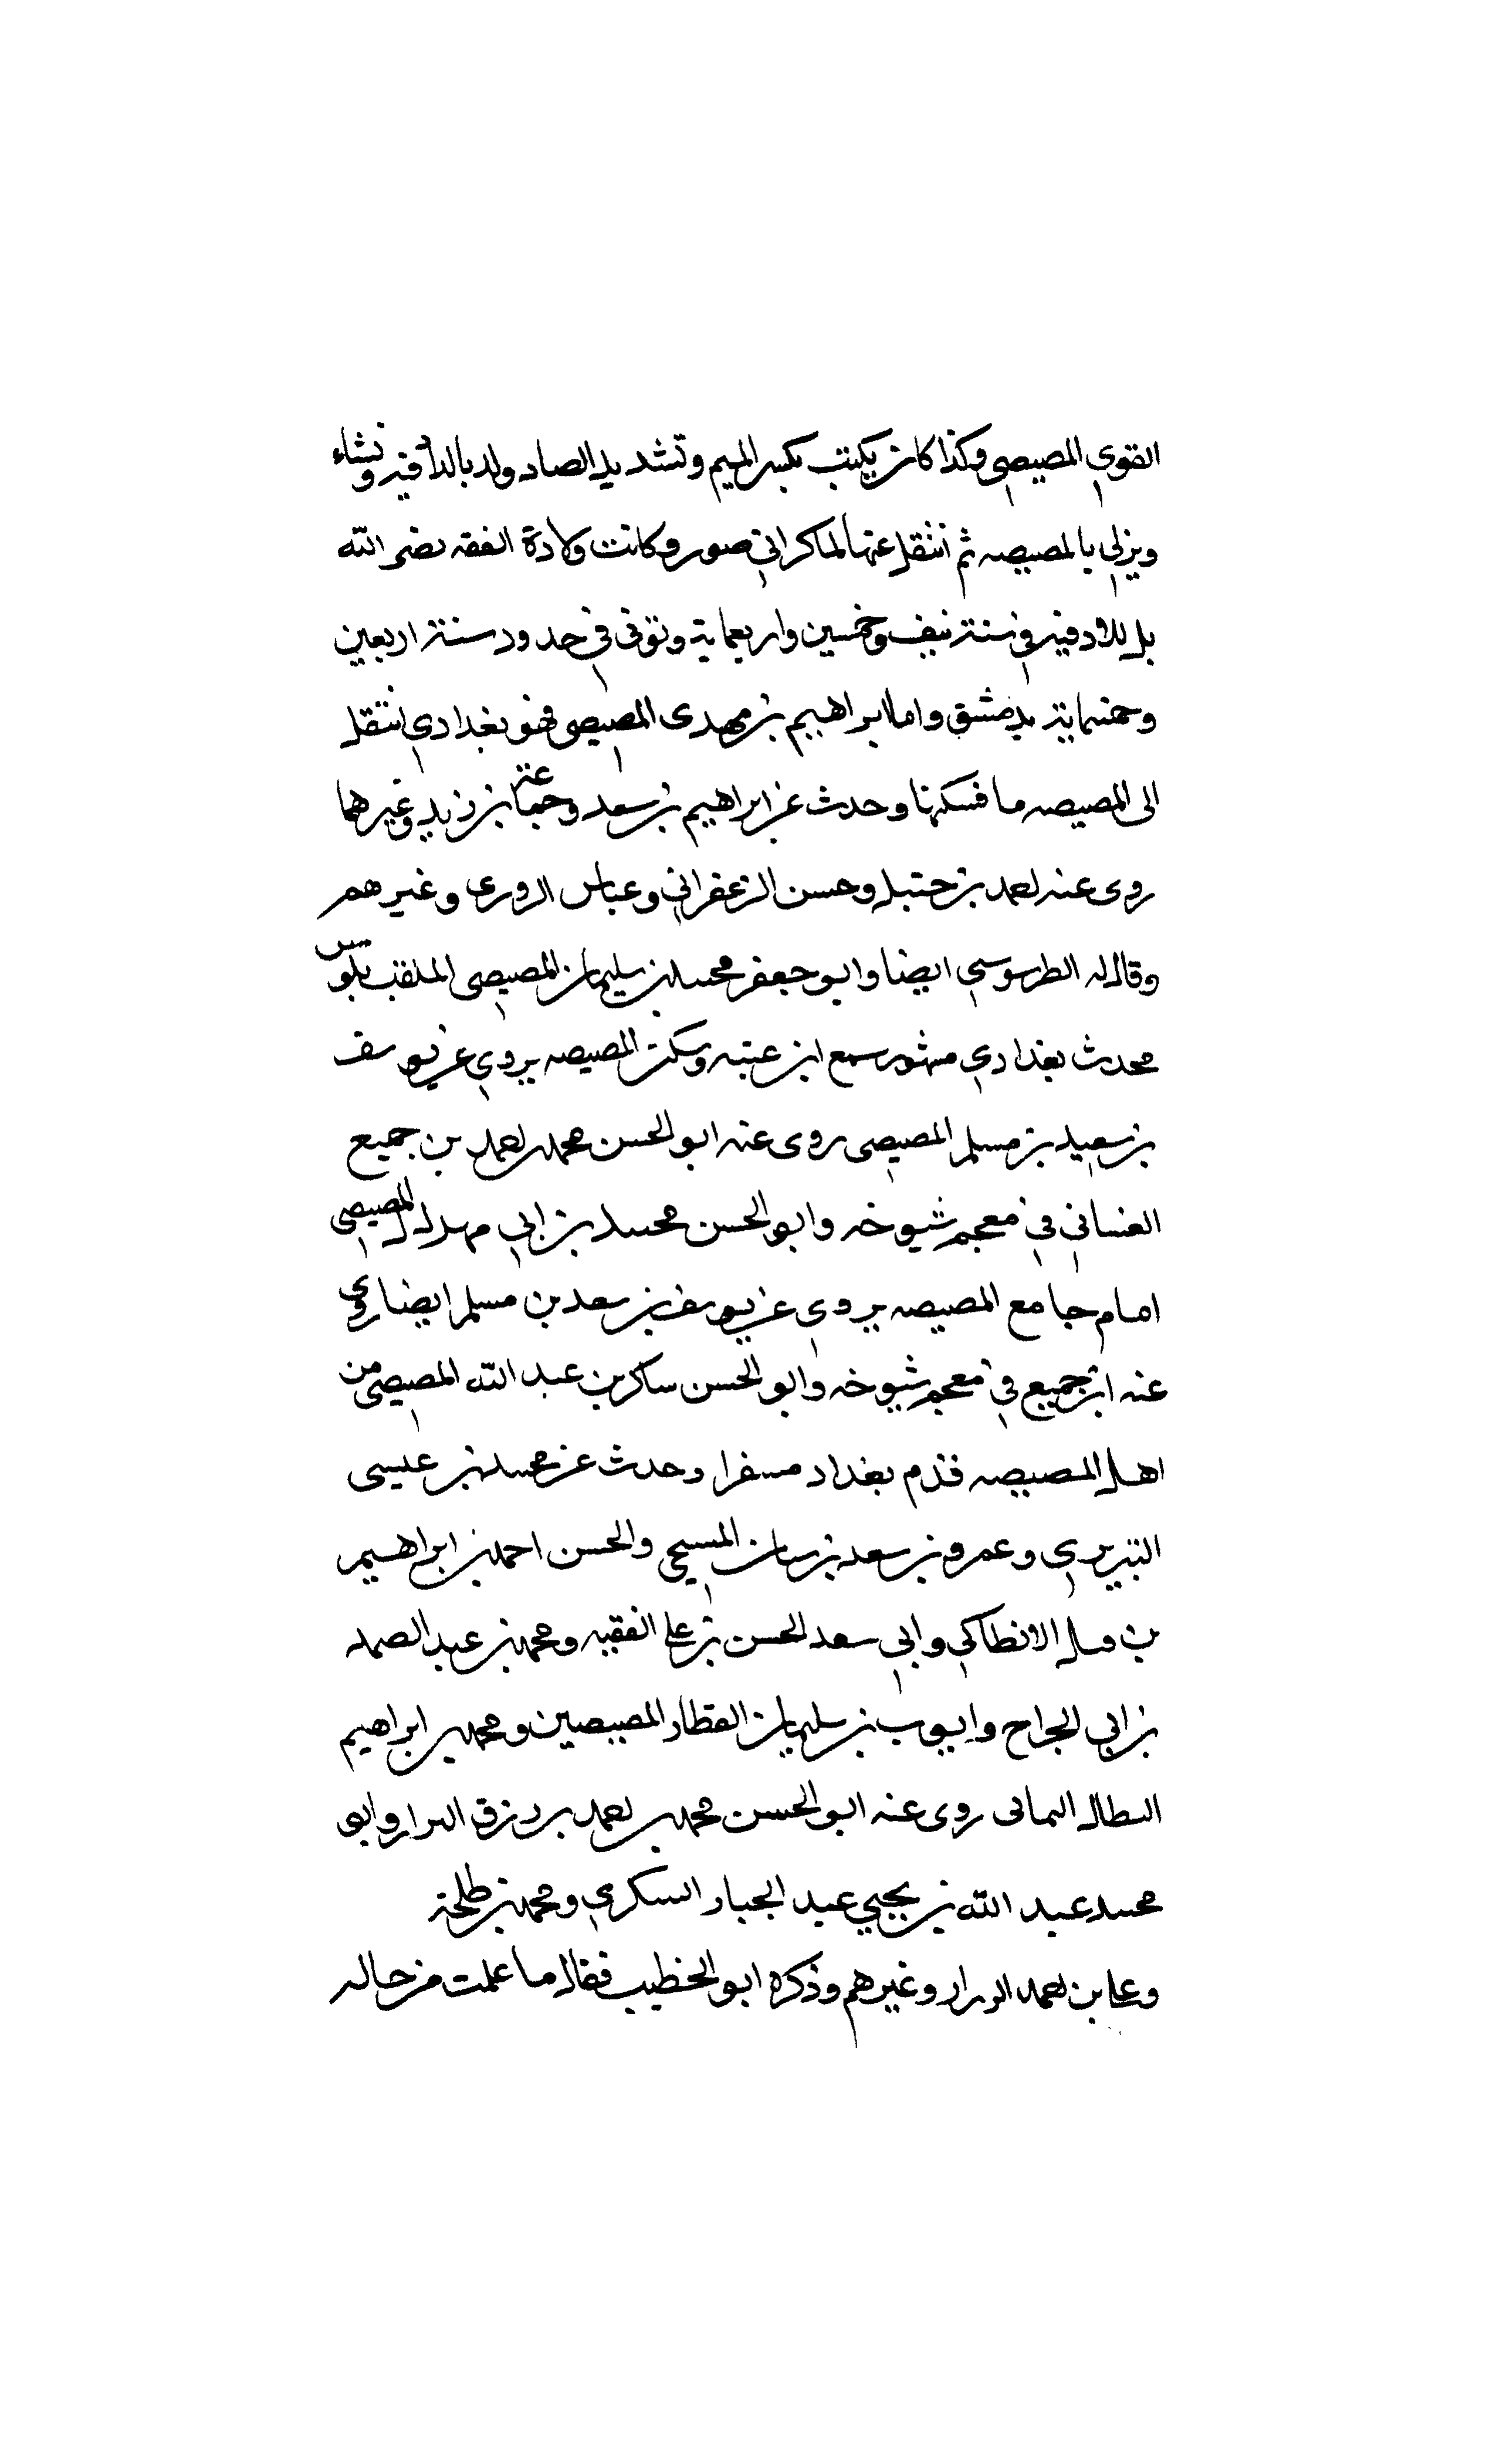 القوي المصيصي وكذا كان يكتب بكسر الميم وتشديد الصاد ولد باللاذقيه ونشاء
بالمصيصه ثم انتقل عنها الى صور وكانت ولادة الفقه نصر الله
باللاذقيه في سنة نيف وخمسين واربعماية وتوفى في حدود سنة اربعين
وخمسماية بدمشق واما ابراهيم بن مهدى المصيصي فهو بغدادي انتقل
الى المصيصه فسكنها وحدث عن ابراهيم بن سعد وحماد بن زيد وغيرهما
روى عنه احمد بن حنبل وحسن الزعفراني وعباس الدورى وغيرهم
وقال الطرسوسي ايضا وابو جعفر محمد بن سليمان المصيصى الملقب بلوين
محدث بغدادي مشهور سمع ابن عيينه وسكن المصيصه يروي عن يوسف
بن سعيد بن مسلم المصيصى روى عنه ابو الحسن محمد بن احمد بن جميع
الغساني في معجم شيوخه وابو الحسن محمد بن ابي المصيصي
امام جامع المصيصه يروي عن يوسف بن سعد بن مسلم ايضا روى
عنه ابن جميع في معجم شيوخه وابو الحسن ساكر بن عبد الله المصيصي من
اهل المصيصه قدم بغداد وحدث عن محمد بن عيسى
وعمرو بن سعد بن سنان والحسن احمد بن ابراهيم
بن الانطاكي وابي سعد الحسن بن علي الفقيه ومحمد بن عبد الصمد
بن ابى الجراح وايوب بن سليمان العطار المصيصين ومحمد بن ابراهيم
البطال اليمانى روى عنه ابو الحسن محمد بن احمد بن رزق البزاز وابو
محمد عبد الله بن يحيي عبد الجبار السكري ومحمد بن طلحة
وعلى بن احمد الرزاز وغيرهم وذكره ابو الخطيب فقال ما علمت من حاله